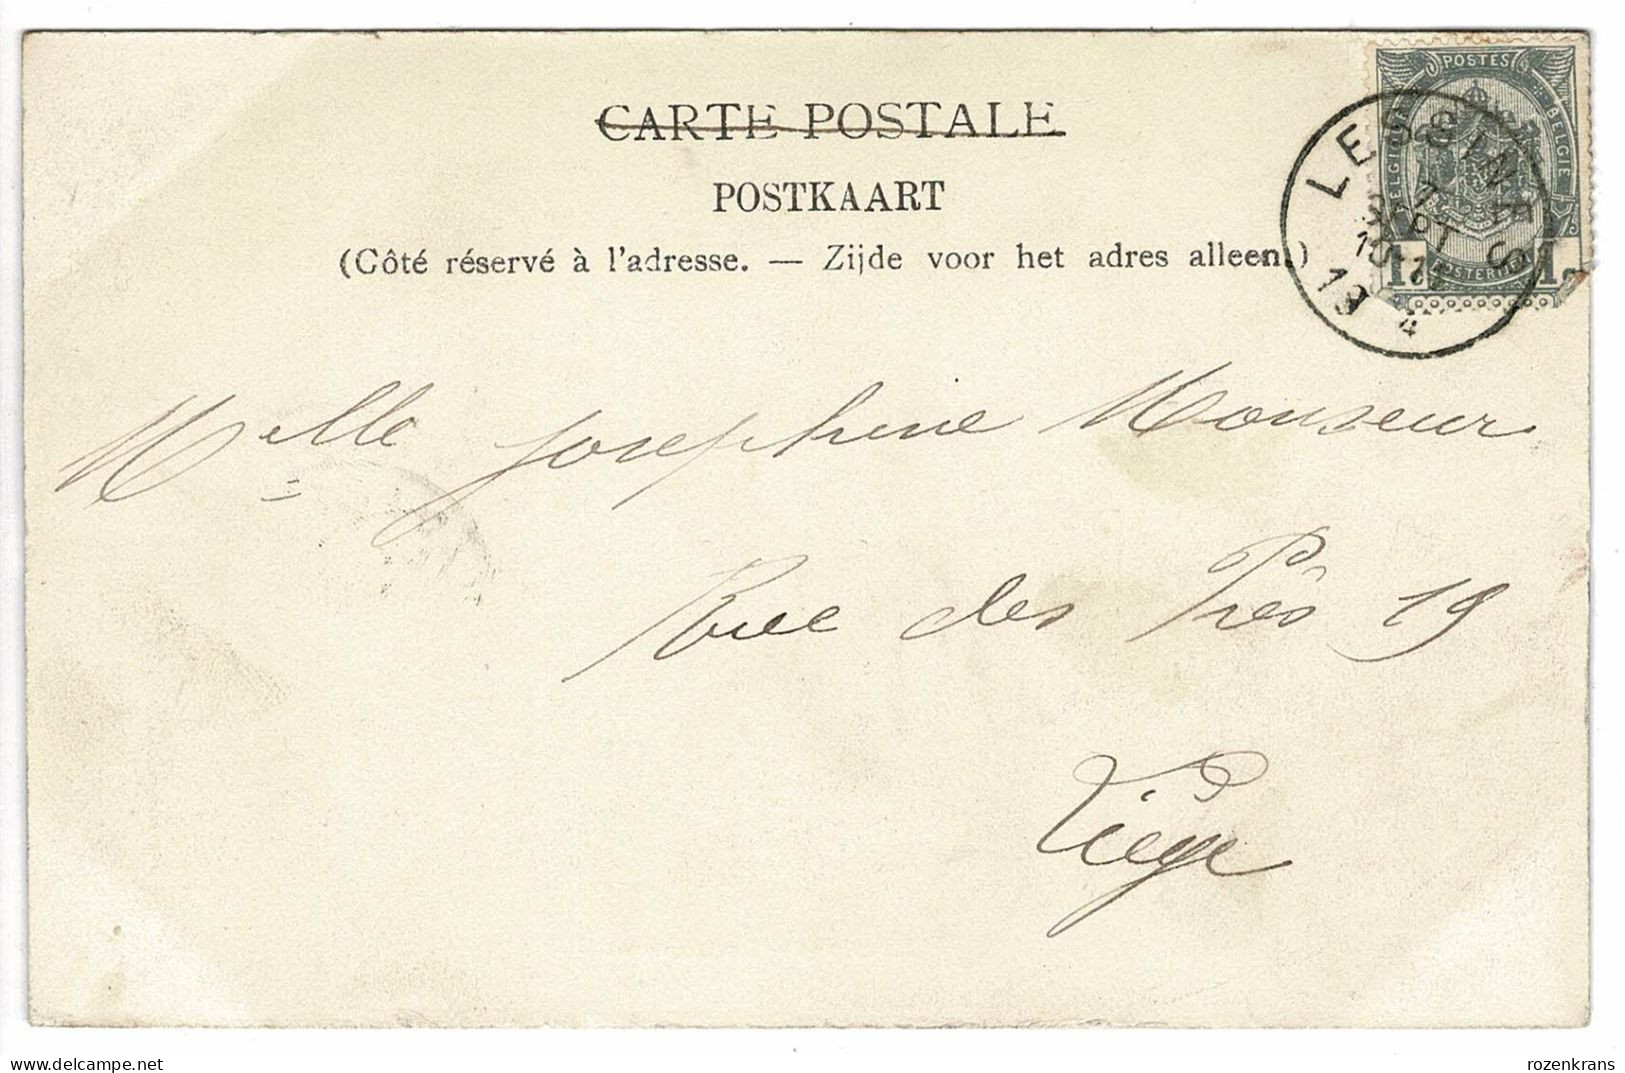 CARTE POSTALE
POSTKAART
(Côté réservé à l'adresse. — Zijde voor het adres alleen.)
POSTES
BELGIQUE BELGIË
POSTERIJEN
1 1
LESSINES
7
SEPT
4
Melle Josephine Monseur
Rue des Prés 19
Liège
rozenkrans